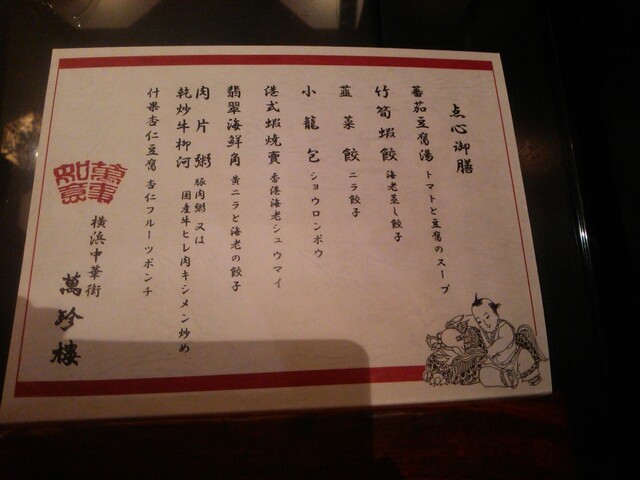 点心御膳
蕃茄豆腐湯 トマトと豆腐のスープ
竹筍蝦餃 海老蒸し餃子
韮菜餃 ニラ餃子
小龍包 ショウロンポウ
港式蝦焼賣 香港海老シュウマイ
翡翠海鮮角 黄ニラと海老の餃子
肉片粥 豚肉粥 又は
乾炒牛柳河 国産牛ヒレ肉キシメン炒め
什果杏仁豆腐 杏仁フルーツポンチ
萬事如意
横浜中華街
萬珍樓